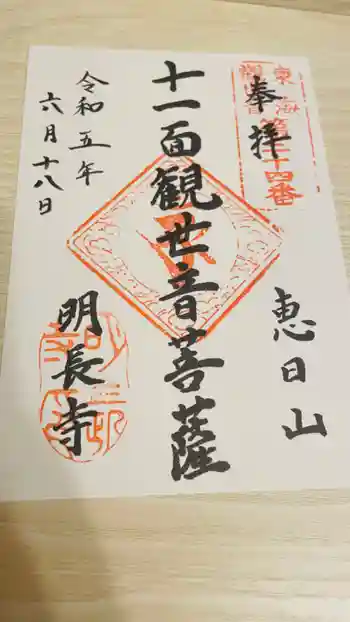 奉拝
恵日山
十一面観世音菩薩
令和五年
六月十八日
明長寺